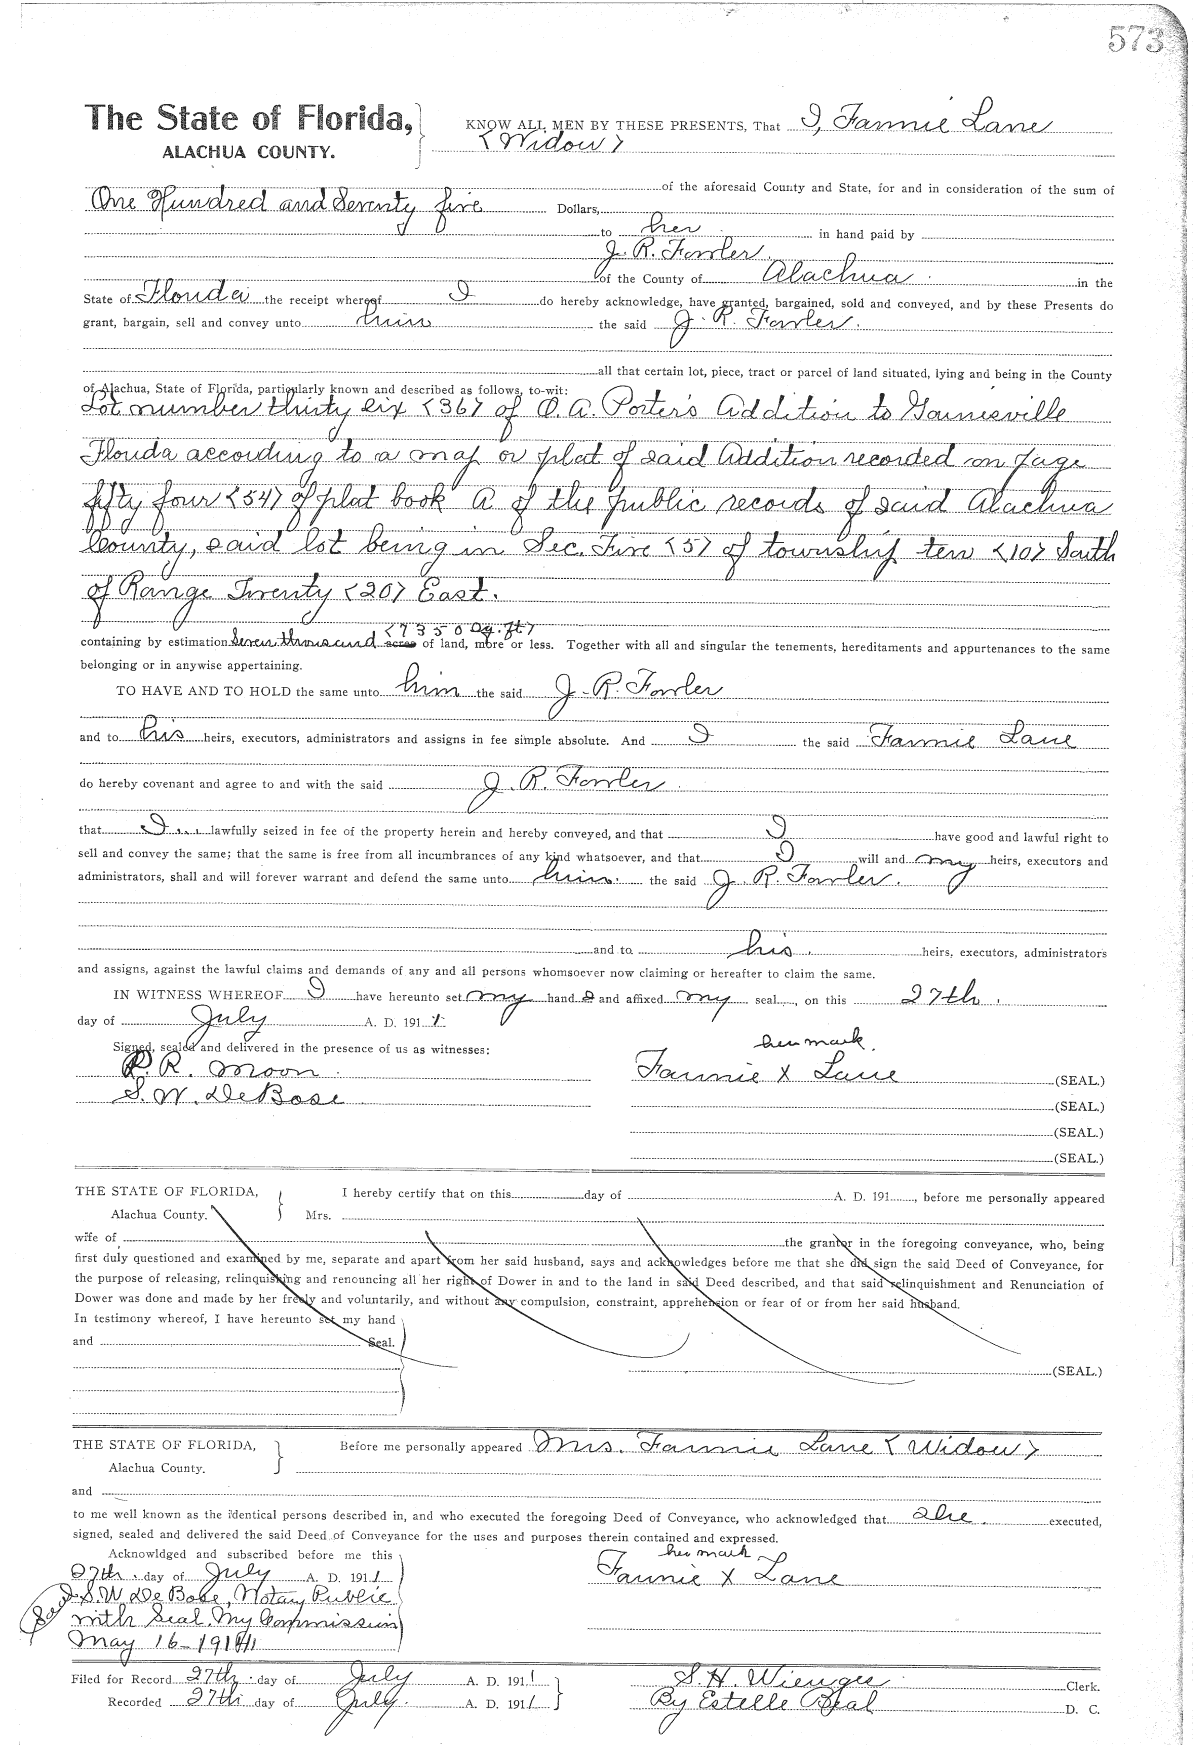 573
The State of Florida,
ALACHUA COUNTY.
KNOW ALL MEN BY THESE PRESENTS, That I, Fannie Lane
<Widow>
of the aforesaid County and State, for and in consideration of the sum of
One Hundred and Seventy five Dollars,
to her in hand paid by
J. R. Fowler
of the County of Alachua in the
State of Florida the receipt whereof I do hereby acknowledge, have granted, bargained, sold and conveyed, and by these Presents do
grant, bargain, sell and convey unto him the said J. R. Fowler.
all that certain lot, piece, tract or parcel of land situated, lying and being in the County
of Alachua, State of Florida, particularly known and described as follows, to-wit:
Lot number thirty six <36> of O. A. Porter's Addition to Gainesville
Florida according to a map or plat of said Addition recorded on page
fifty four <54> of plat book A of the public records of said Alachua
County, said lot being in Sec. Five <5> of township ten <10> South
of Range Twenty <20> East.
<7350 Sq. ft>
containing by estimation Seven thousand acres of land, more or less. Together with all and singular the tenements, hereditaments and appurtenances to the same
belonging or in anywise appertaining.
TO HAVE AND TO HOLD the same unto him the said J. R. Fowler
and to his heirs, executors, administrators and assigns in fee simple absolute. And I the said Fannie Lane
do hereby covenant and agree to and with the said J. R. Fowler
that I lawfully seized in fee of the property herein and hereby conveyed, and that I have good and lawful right to
sell and convey the same; that the same is free from all incumbrances of any kind whatsoever, and that I will and my heirs, executors and
administrators, shall and will forever warrant and defend the same unto him the said J. R. Fowler.
and to his heirs, executors, administrators
and assigns, against the lawful claims and demands of any and all persons whomsoever now claiming or hereafter to claim the same.
IN WITNESS WHEREOF I have hereunto set my hand and affixed my seal, on this 27th
day of July A. D. 1911.
Signed, sealed and delivered in the presence of us as witnesses:
her mark.
R. R. Moon
Fannie X Lane (SEAL.)
S. W. DeBose
(SEAL.)
(SEAL.)
(SEAL.)
THE STATE OF FLORIDA,
Alachua County.
I hereby certify that on this day of A. D. 191 , before me personally appeared
Mrs.
wife of the grantor in the foregoing conveyance, who, being
first duly questioned and examined by me, separate and apart from her said husband, says and acknowledges before me that she did sign the said Deed of Conveyance, for
the purpose of releasing, relinquishing and renouncing all her right of Dower in and to the land in said Deed described, and that said relinquishment and Renunciation of
Dower was done and made by her freely and voluntarily, and without any compulsion, constraint, apprehension or fear of or from her said husband.
In testimony whereof, I have hereunto set my hand
and Seal.
(SEAL.)
THE STATE OF FLORIDA,
Alachua County.
Before me personally appeared Mrs. Fannie Lane <Widow>
and
to me well known as the identical persons described in, and who executed the foregoing Deed of Conveyance, who acknowledged that she executed,
signed, sealed and delivered the said Deed of Conveyance for the uses and purposes therein contained and expressed.
Acknowldged and subscribed before me this
her mark
27th day of July A. D. 1911
Fannie X Lane
S. W. DeBose, Notary Public
Seal
with Seal. My Commission
May 16-1914
Filed for Record 27th day of July A. D. 1911
S. H. Wienges Clerk.
Recorded 27th day of July A. D. 1911
By Estelle Beal D. C.